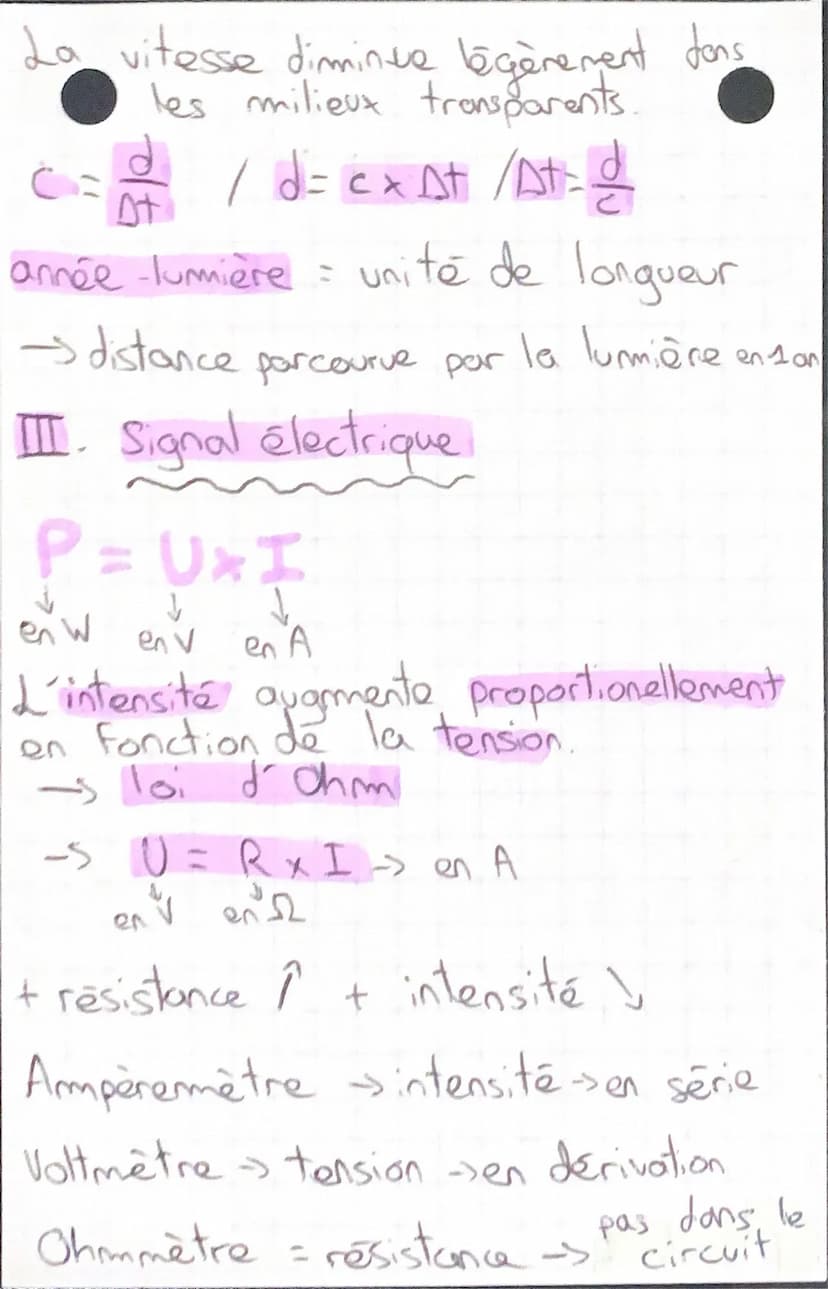 La vitesse diminue légèrement dans
les milieux transparents.
c = d/Δt / d = c x Δt / Δt = d/c
année-lumière = unité de longueur
→ distance parcourue par la lumière en 1 an
III. Signal électrique
P = U x I
↓ ↓ ↓
en W en V en A
L'intensité augmente proportionellement
en fonction de la tension.
→ loi d'Ohm
→ U = R x I → en A
↓ ↓
en V en Ω
+ résistance ↑ + intensité ↘
Ampèremètre → intensité → en série
Voltmètre → tension → en dérivation
Ohmmètre = résistance → pas dans le
circuit